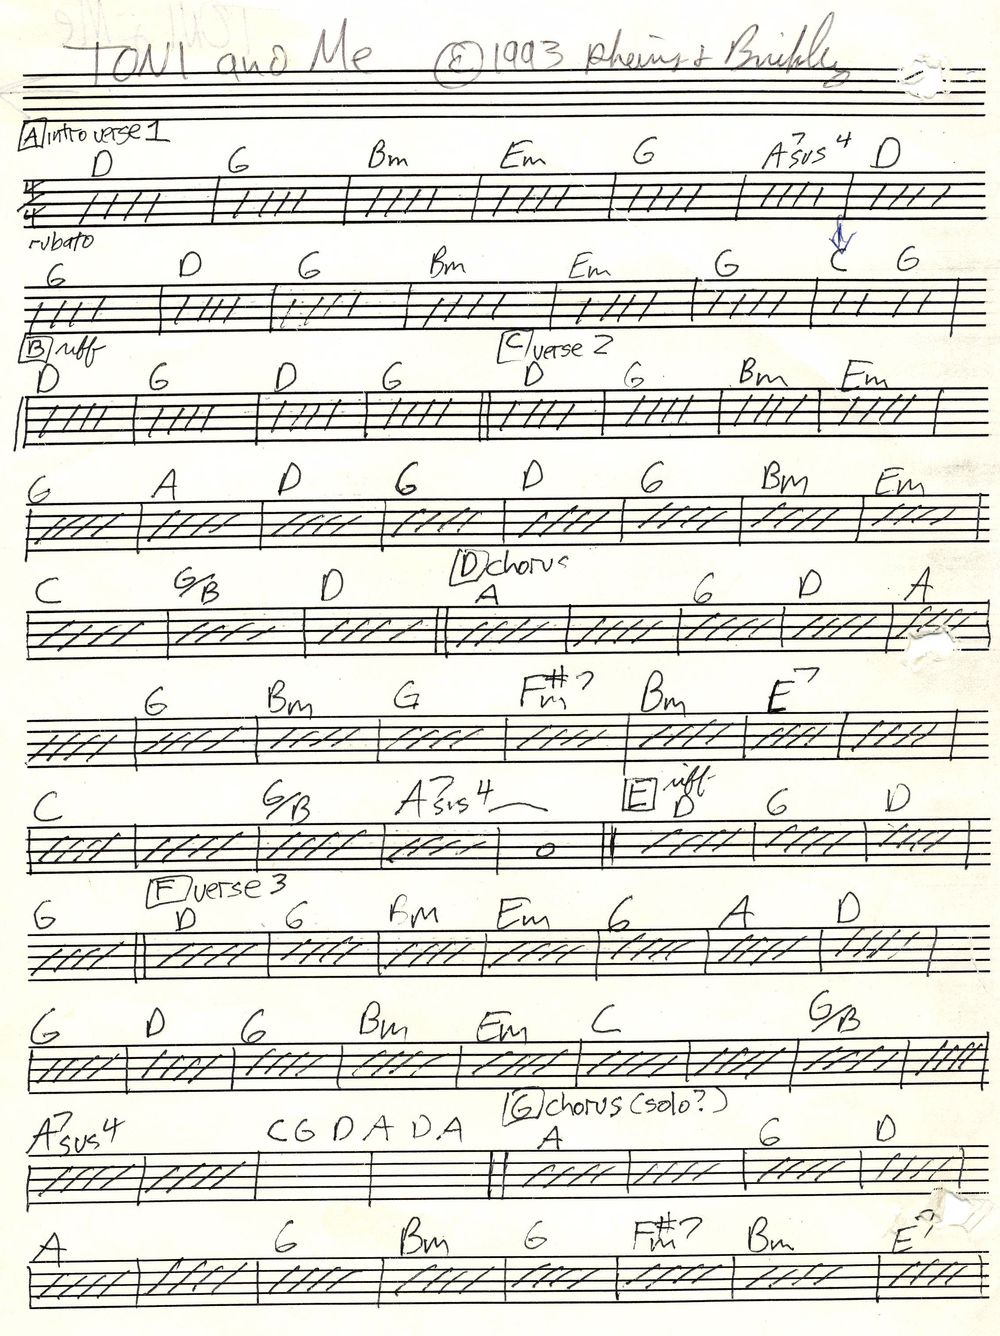 TONI and Me © 1993 Rheins + Brinkley
A intro verse 1
D G Bm Em G A7sus4 D
4/4
rubato
G D G Bm Em G C G
B riff C verse 2
D G D G D G Bm Em
G A D G D G Bm Em
D chorus
C G/B D A G D A
G Bm G F#m7 Bm E7
E riff
C G/B A7sus4 D G D
F verse 3
G D G Bm Em G A D
G D G Bm Em C G/B
G chorus (solo?)
A7sus4 C G D A D A A G D
A G Bm G F#m7 Bm E7